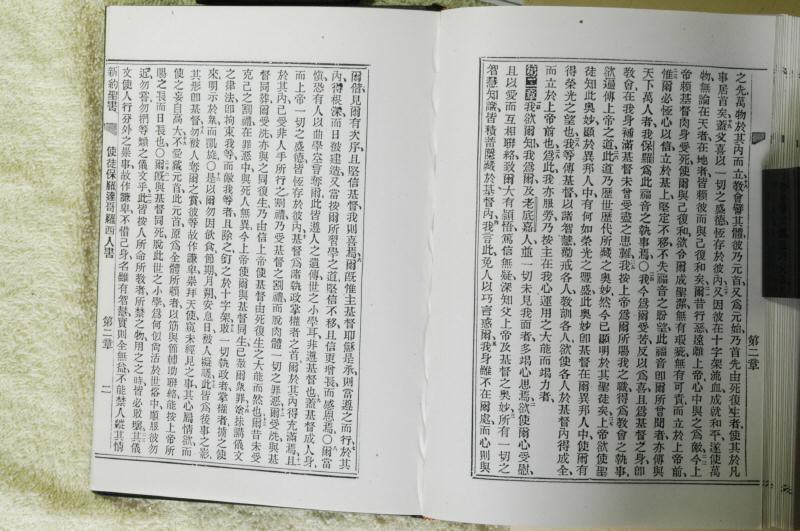 第二章
之先萬物於其內而立教會譬其體彼乃元首又爲元始乃首先由死復生者使其於凡
事居首矣蓋父喜以一切之盛德恆存於彼內又因彼在十字架流血成就和平遂使萬
物無論在天者在地者皆賴彼而與己復和矣爾昔行惡遠離上帝心中與之爲敵今上
帝賴基督肉身受死使爾與己復和欲令爾成聖潔無有瑕疵無有可責而立於上帝前
惟爾必恆心以信立於基上堅定不移不失福音之盼望此福音卽爾所曾聞者亦傳與
天下萬人者我保羅爲此福音之執事焉〇我今爲爾受苦反以爲喜且爲基督之身卽
教會在我身補滿基督未曾受盡之患難我按上帝爲爾所賜我之職得爲教會之執事
欲遍傳上帝之道此道乃歷世歷代所藏之奧妙然今已顯明於其聖徒矣上帝欲使聖
徒知此奧妙顯於異邦人中有何如榮光之豐盛此奧妙卽基督在爾異邦人中使爾有
得榮光之望也我等傳基督以諸智慧勸戒各人教訓各人欲使各人於基督內得成全
而立於上帝前也爲此我亦服勞乃按主在我心運用之大能而竭力者
第二章我欲爾知我爲爾及老底嘉人並一切未見我面者多竭心思焉欲使爾心受慰
且以愛而互相聯絡致爾大有頴悟篤信無疑深知父上帝及基督之奧妙所有一切之
智慧知識皆積蓄隱藏於基督內我言此免人以巧言惑爾我身雖不在爾處而心則與
爾偕見爾有次序且堅信基督我則喜焉爾旣惟主基督耶穌是承則當遵之而行於其
內得根深而日被建造又當按爾所習學之道堅信不移且信更增長而感恩焉〇爾當
愼恐有人以曲學空言奪爾此皆遵人之遺傳世之小學耳非遵基督也蓋基督成人身
而上帝一切之盛德皆恆存於彼內基督爲諸執政掌權者之首爾於其內得充滿焉且
於其內已受非人手所行之割禮乃受基督之割禮而脫肉體一切之罪惡爾受洗與基
督同葬爾受洗亦與之同復生乃由信上帝使基督由死復生之大能而然也爾昔未受
克己之割禮在罪惡中與死人無異今上帝使爾與基督同生已赦爾衆罪塗抹儀文
之律法卽拘束我等而敵我等者且除之釘之於十字架敗一切執政者掌權者擄之使
來明示於衆而凱旋〇是以爾勿因飲食節期月朔安息日被人擬議此皆爲後事之影
其形卽基督勿被人奪爾之賞彼等故作謙卑崇拜天使窺未經見之事其心屬情欲而
使之妄自高大不愛戴元首此元首原爲全體所賴者以筋與節相助聯絡能按上帝所
賜之長而日長也〇爾旣與基督同死脫此世之小學爲何似尚活於世俗中而服彼勿
近勿嘗勿捫等類之儀文乎此皆按人所命所教者所禁之物用之之時皆必敗壞其儀
文使人行分外之崇事故作謙卑不惜己身名雖有智慧實則全無益不能禁人縱其情
新約聖書
使徒保羅達哥羅西人書
第二章
二